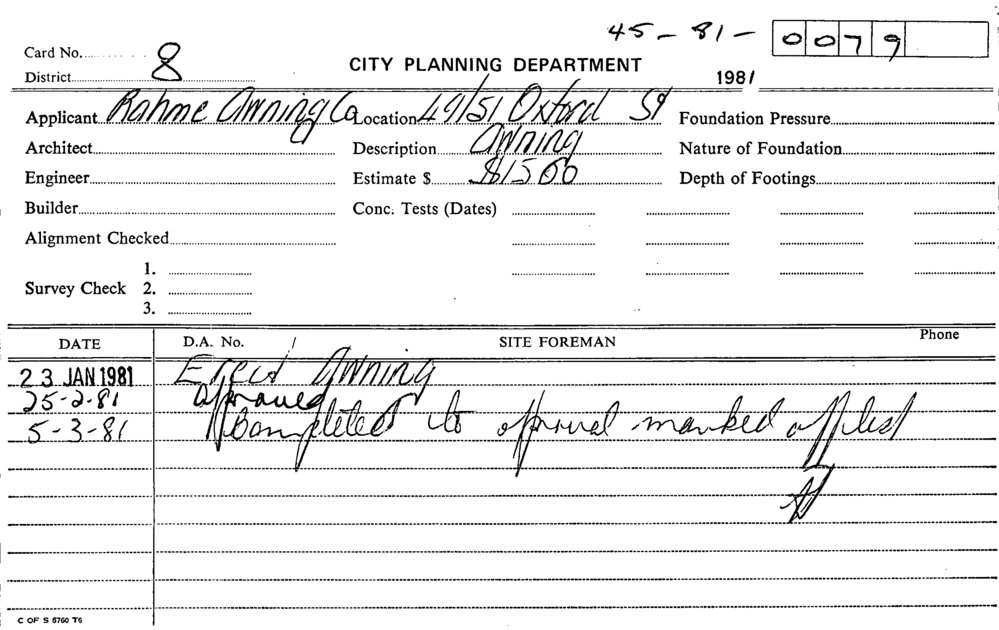 45-81- 0079
Card No. 8
District
CITY PLANNING DEPARTMENT 1981
Applicant Rahme Awning Co Location 49/51 Oxford St Foundation Pressure
Architect Description Awning Nature of Foundation
Engineer Estimate $ $1500 Depth of Footings
Builder Conc. Tests (Dates)
Alignment Checked
1.
Survey Check 2.
3.
DATE D.A. No. SITE FOREMAN Phone
23 JAN 1981 Erect Awning
25-2-81 Approved
5-3-81 Completed to approval marked off list
C OF S 6760 T6